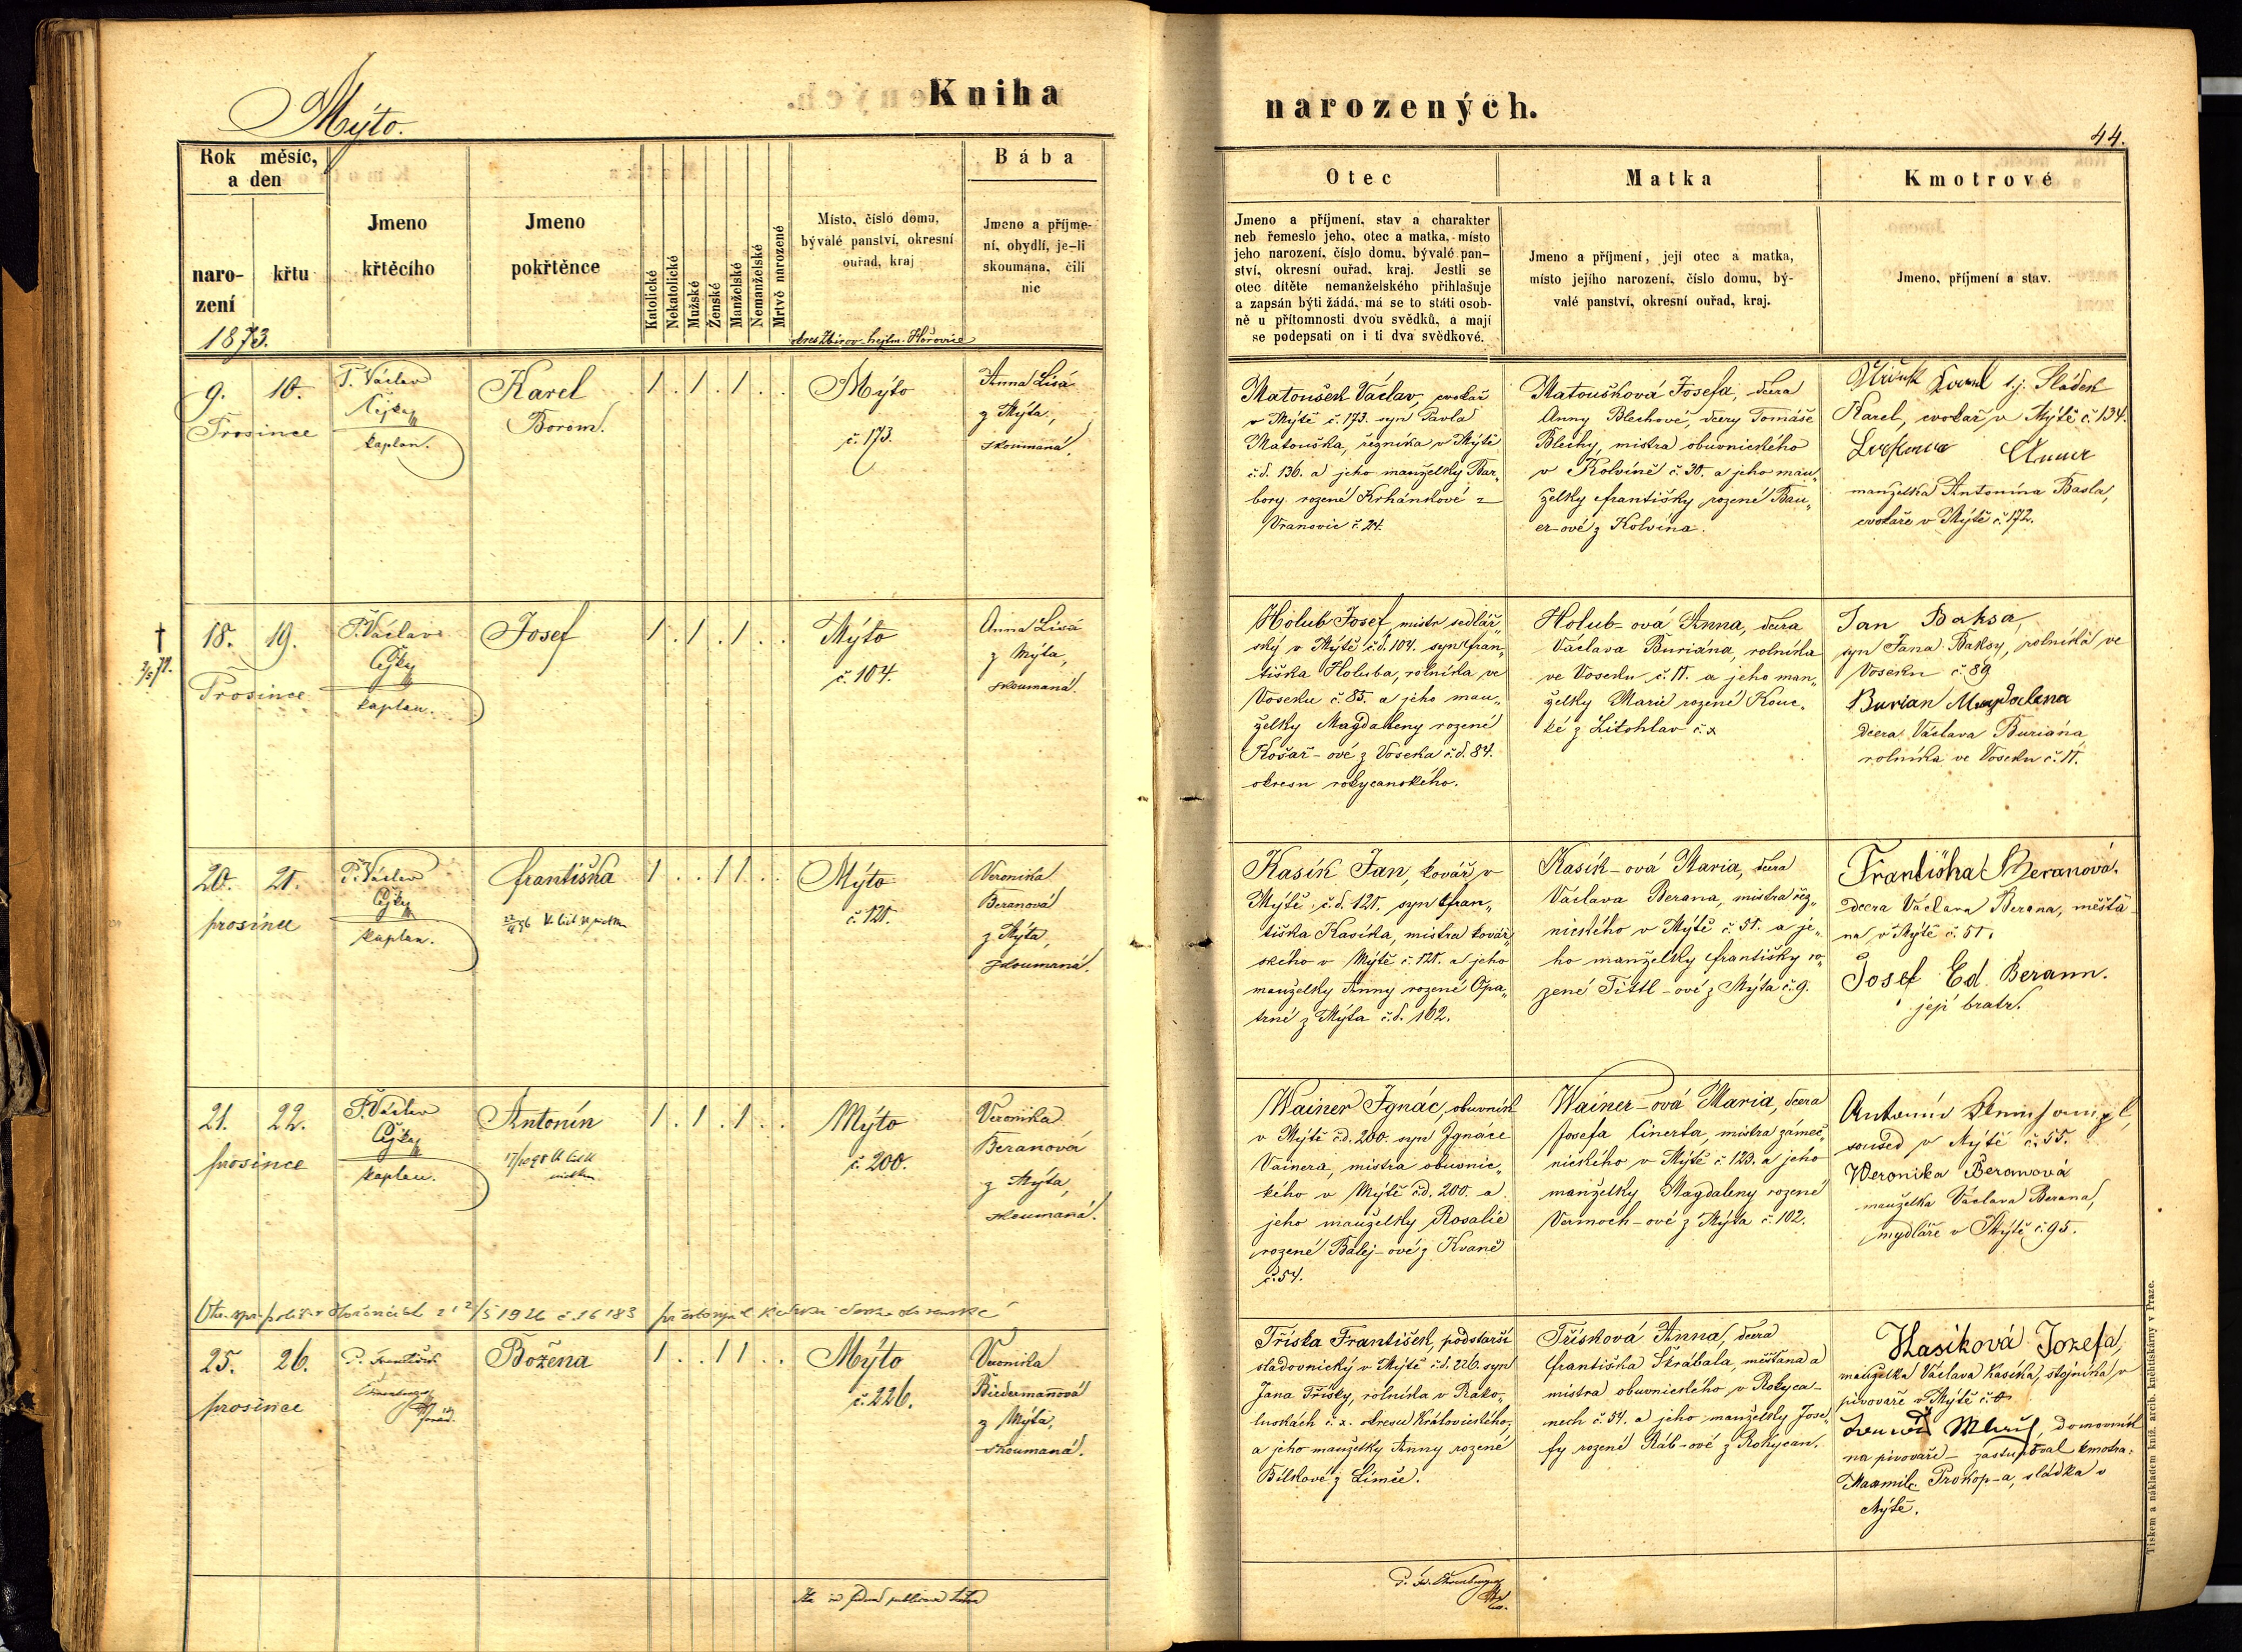 Mýto.
Kniha
Rok měsíc,
a den
naro-
zení
křtu
1873.
Jmeno
křtěcího
Jmeno
pokřtěnce
Katolické
Nekatolické
Mužské
Ženské
Manželské
Nemanželské
Mrtvě narozené
Místo, číslo domu,
bývalé panství, okresní
ouřad, kraj
okres Zbirov hejtm. Hořovice
Bába
Jmeno a příjme-
ní, obydlí, je-li
skoumána, čili
nic
9. 10.
Prosince
P. Václav
Čejka
kaplan.
Karel
Borom.
1 . 1 . 1 . .
Mýto
č. 173.
Anna Lisá
z Mýta,
skoumaná.
†
18. 19.
Prosince
P. Václav
Čejka
kaplan.
Josef
1 . 1 . 1 . .
Mýto
č. 104.
Anna Lisá
z Mýta,
skoumaná.
20. 21.
prosince
P. Václav
Čejka
kaplan.
Františka
1 . . 1 1 . .
Mýto
č. 121.
Veronika
Beranová
z Mýta,
skoumaná.
21. 22.
prosince
P. Václav
Čejka
kaplan.
Antonín
1 . 1 . 1 . .
Mýto
č. 200.
Veronika
Beranová
z Mýta,
skoumaná.
1926 č. 16183
25. 26.
prosince
P. František
Božena
1 . . 1 1 . .
Mýto
č. 226.
Veronika
Biedermanová
z Mýta,
skoumaná.
narozených.
44.
Otec
Jmeno a příjmení, stav a charakter
neb řemeslo jeho, otec a matka, místo
jeho narození, číslo domu, bývalé pan-
ství, okresní ouřad, kraj. Jestli se
otec dítěte nemanželského přihlašuje
a zapsán býti žádá, má se to státi osob-
ně u přítomnosti dvou svědků, a mají
se podepsati on i ti dva svědkové.
Matka
Jmeno a příjmení, její otec a matka,
místo jejího narození, číslo domu, bý-
valé panství, okresní ouřad, kraj.
Kmotrové
Jmeno, příjmení a stav.
Matoušek Václav, cvokař
v Mýtě č. 173. syn Pavla
Matouška, řezníka v Mýtě
č.d. 136. a jeho manželky Bar„
bory rozené Krhánkové z
Vranovic č. 24.
Matoušková Josefa, dcera
Anny Blechové, dcery Tomáše
Blechy, mistra obuvnického
v Kolvíně č. 30. a jeho man„
želky Františky rozené Bau„
er-ové z Kolvína.
t.j. Sládek
Karel, cvokař v Mýtě č. 134.
manželka Antonína Basla,
cvokaře v Mýtě č. 172.
Holub Josef, mistr sedlář„
ský v Mýtě č.d. 104. syn Fran„
tiška Holuba, rolníka ve
Voseku č. 85. a jeho man„
želky Magdaleny rozené
Košař-ové z Voseka č.d. 84.
okresu rokycanského.
Holub-ová Anna, dcera
Václava Buriána, rolníka
ve Voseku č. 11. a jeho man„
želky Marie rozené Kouc„
ké z Litohlav č. x
Jan Baksa,
syn Jana Baksy, rolníka ve
Voseku č. 89
Burian Magdalena
dcera Václava Buriána
rolníka ve Voseku č. 11.
Kasík Jan, kovář v
Mýtě, č.d. 121. syn Fran„
tiška Kasíka, mistra kovář„
ského v Mýtě č. 121. a jeho
manželky Anny rozené Opa„
trné z Mýta č.d. 162.
Kasík-ová Maria, dcera
Václava Berana, mistra řez„
nického v Mýtě č. 51. a je„
ho manželky Františky ro„
zené Tittl-ové z Mýta č. 9.
Františka Beranová.
dcera Václava Berana, měšťa
na v Mýtě č. 51.
Josef Ed. Berann.
její bratr.
Wainer Ignác, obuvník
v Mýtě č.d. 200. syn Ignáce
Vainera, mistra obuvnic„
kého v Mýtě č.d. 200. a
jeho manželky Rosalie
rozené Balej-ové z Kvaně
č. 54.
Wainer-ová Maria, dcera
Josefa Cinerta, mistra zámeč„
nického v Mýtě č. 123. a jeho
manželky Magdaleny rozené
Vermoch-ové z Mýta č. 102.
Antonín
soused v Mýtě č. 55.
Weronika Beranová
manželka Václava Berana,
mydláře v Mýtě č. 95.
Tříska František, podstarší
sladovnický v Mýtě č.d. 226. syn
Jana Třísky, rolníka v Rako„
luskách č. x. okresu Královického,
a jeho manželky Anny rozené
Bílkové z Limče.
Třísková Anna, dcera
Františka Škrábala, měšťana a
mistra obuvnického v Rokyca-
nech č. 54. a jeho manželky Jose„
fy rozené Ráb-ové z Rokycan.
Kasíková Jozefa,
manželka Václava Kasíka, stojníka v
pivovaře v Mýtě č. 0
domovník
na pivovaře – zastupoval kmotra:
Maxmil. Prokop-a, sládka v
Mýtě.
Tiskem a nákladem kníž. arcib. knihtiskárny v Praze.